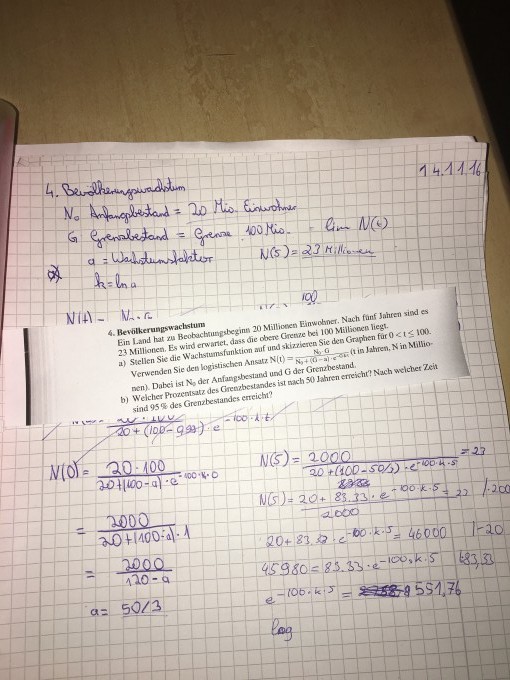 14.11.16
4. Bevölkerungswachstum
N₀ Anfangsbestand = 20 Mio. Einwohner
G Grenzbestand = Grenze 100 Mio. = lim N(t)
a = Wachstumsfaktor N(5) = 23 Millionen
k = ln a
100
N(t) =
4. Bevölkerungswachstum
Ein Land hat zu Beobachtungsbeginn 20 Millionen Einwohner. Nach fünf Jahren sind es
23 Millionen. Es wird erwartet, dass die obere Grenze bei 100 Millionen liegt.
a) Stellen Sie die Wachstumsfunktion auf und skizzieren Sie den Graphen für 0 < t ≤ 100.
Verwenden Sie den logistischen Ansatz N(t) = N₀·G / N₀+(G−a)·e^−Gkt (t in Jahren, N in Millio-
nen). Dabei ist N₀ der Anfangsbestand und G der Grenzbestand.
b) Welcher Prozentsatz des Grenzbestandes ist nach 50 Jahren erreicht? Nach welcher Zeit
sind 95 % des Grenzbestandes erreicht?
20 + (100 − 0,99) · e^−100·k·t
N(0) = 20·100 / 20+(100−a)·e^−100·k·0
= 2000 / 20+(100−a)·1
= 2000 / 120−a
a = 50/3
N(5) = 2000 / 20+(100−50/3)·e^−100·k·5 = 23
N(5) = 20 + 83.33 · e^−100·k·5 / 2000 = 23 |·200
20 + 83.33 · e^−100·k·5 = 46000 |−20
45980 = 83.33 · e^−100·k·5 |:83,33
e^−100·k·5 = 551,76
log